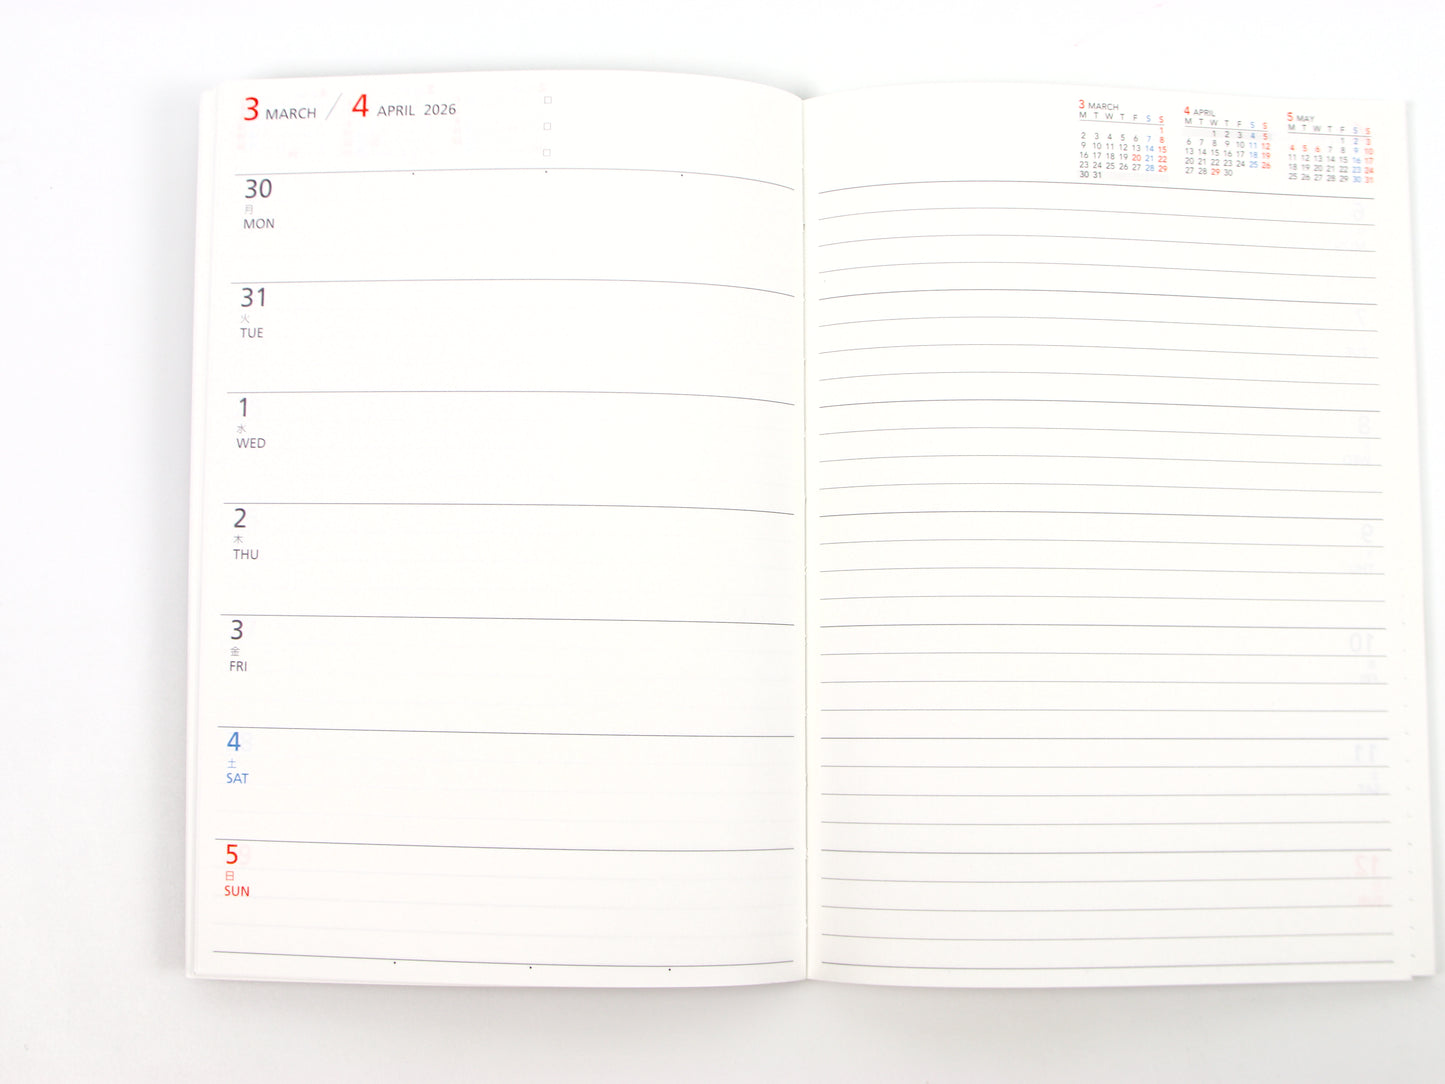 3 MARCH / 4 APRIL 2026
30
月
MON
31
火
TUE
1
水
WED
2
木
THU
3
金
FRI
4
土
SAT
5
日
SUN
3 MARCH
M T W T F S S
1
2 3 4 5 6 7 8
9 10 11 12 13 14 15
16 17 18 19 20 21 22
23 24 25 26 27 28 29
30 31
4 APRIL
M T W T F S S
1 2 3 4 5
6 7 8 9 10 11 12
13 14 15 16 17 18 19
20 21 22 23 24 25 26
27 28 29 30
5 MAY
M T W T F S S
1 2 3
4 5 6 7 8 9 10
11 12 13 14 15 16 17
18 19 20 21 22 23 24
25 26 27 28 29 30 31